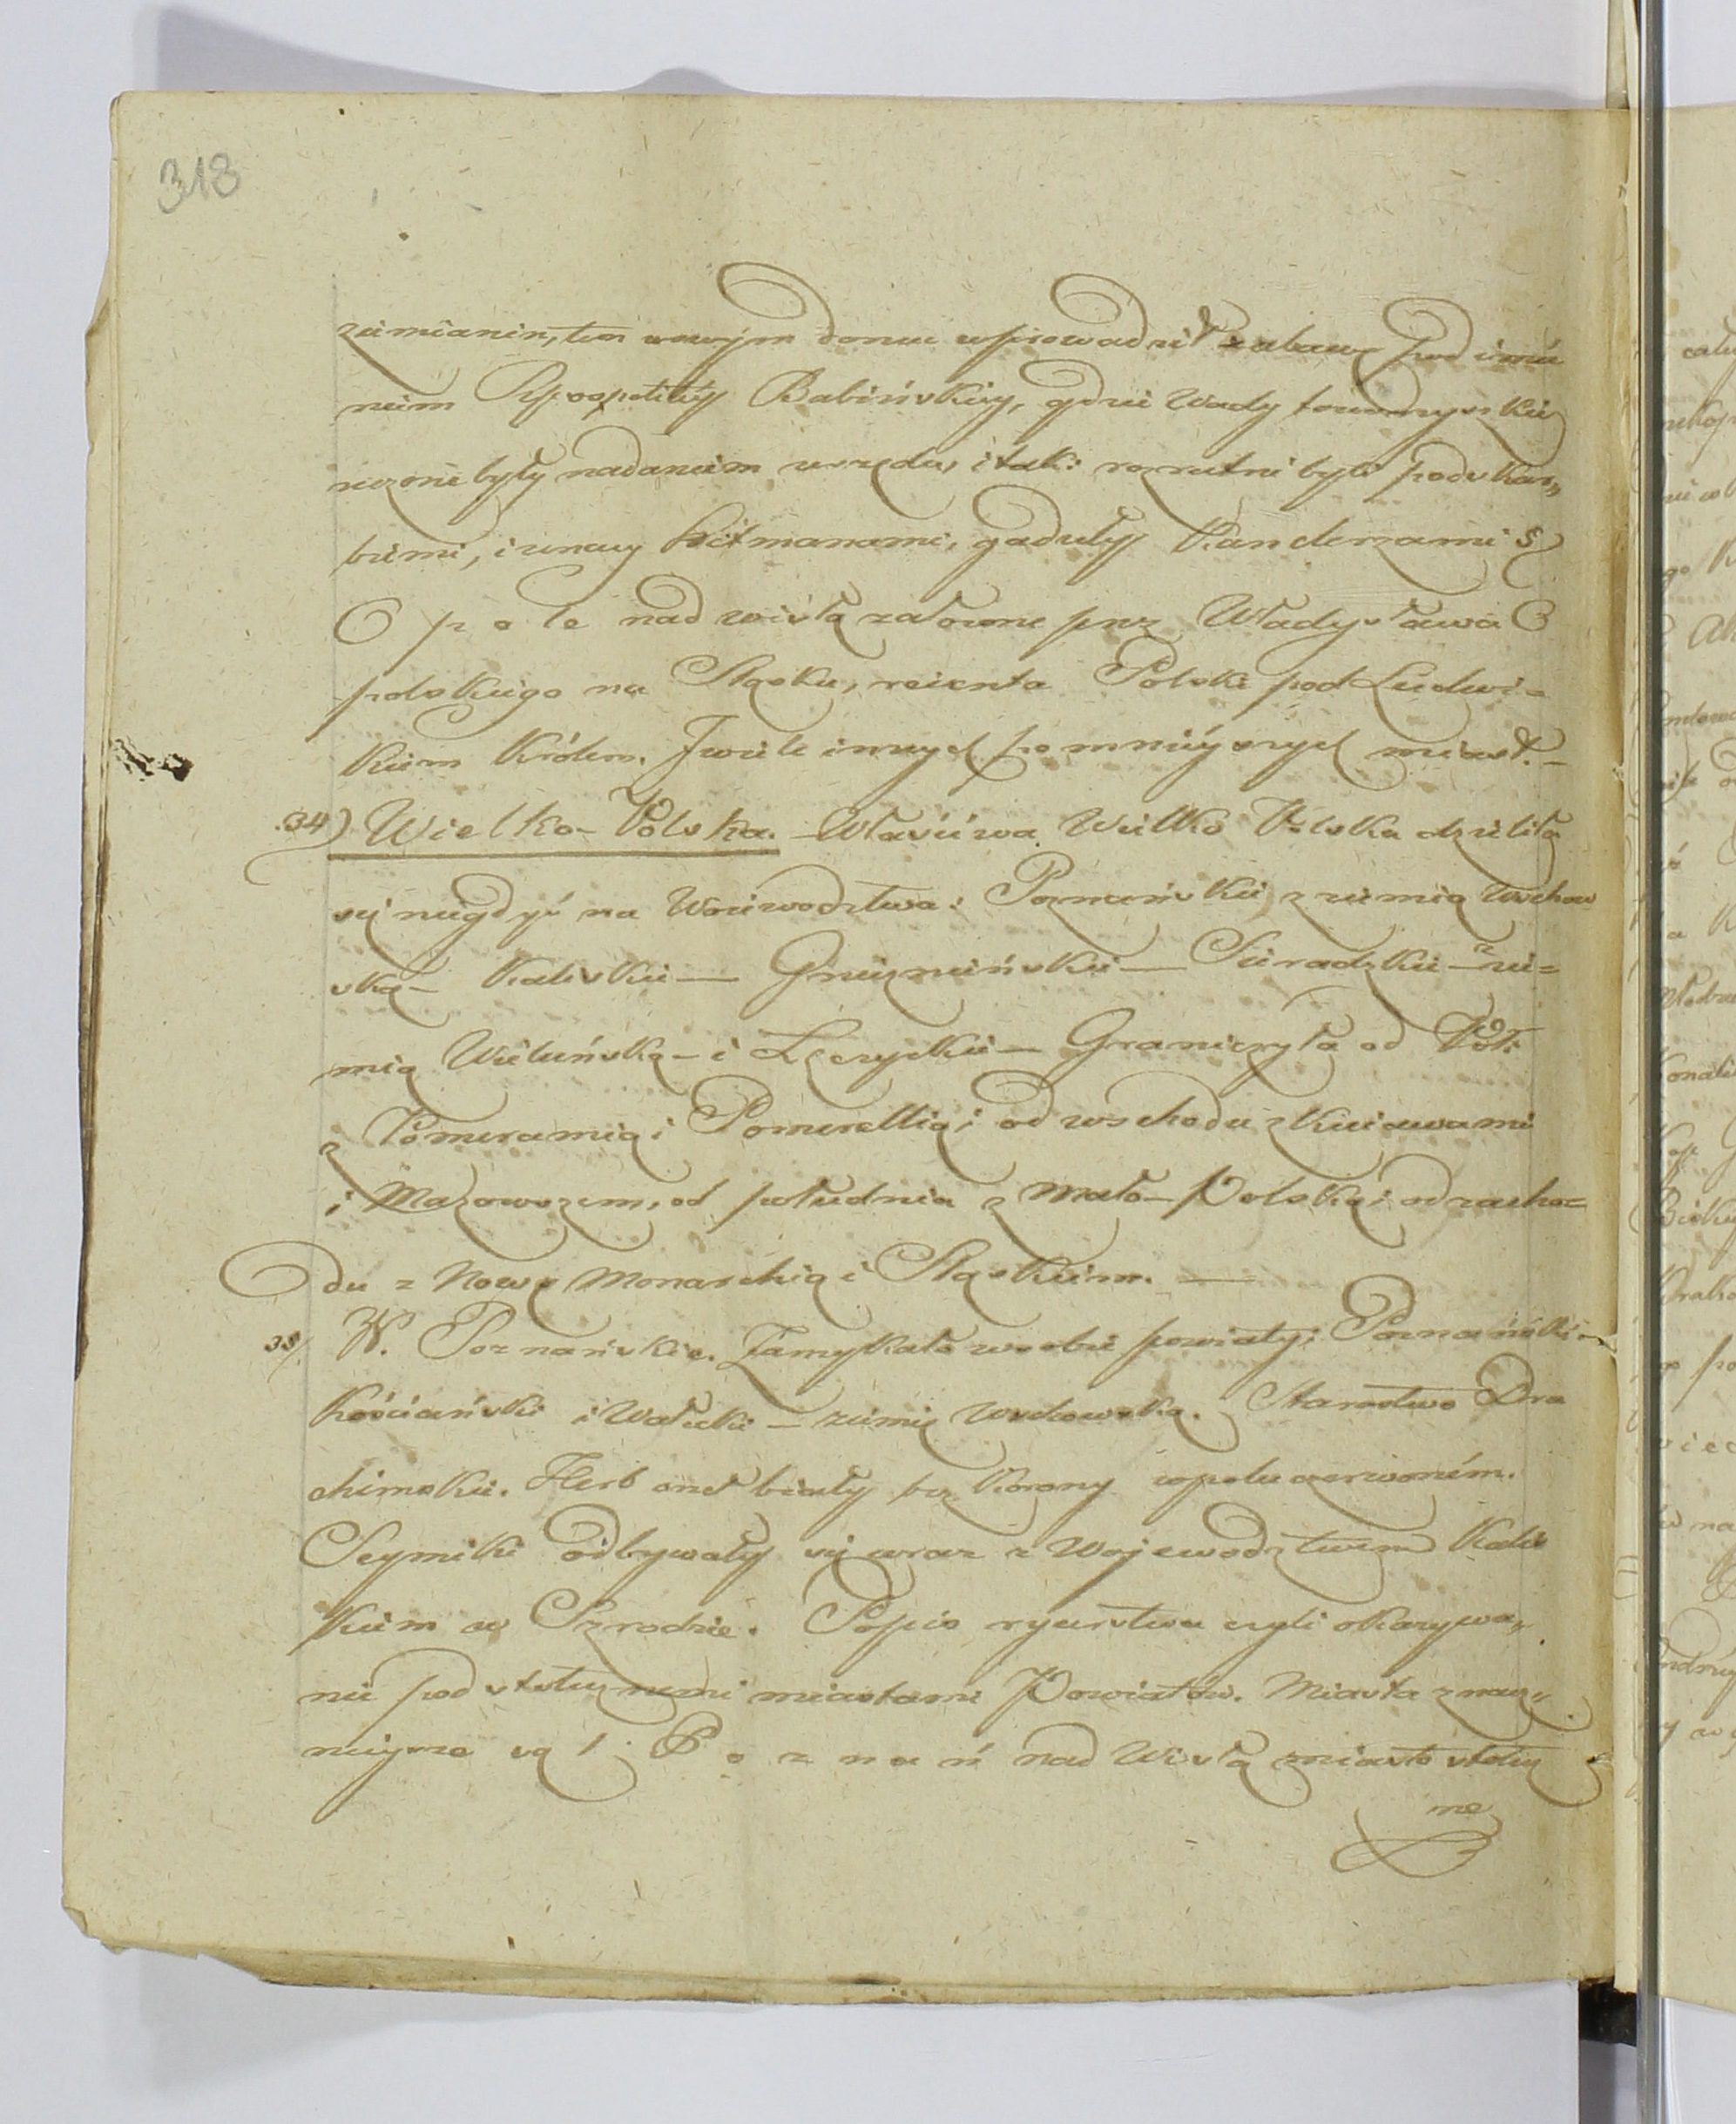 318
ziemianin, ten w swojém domu wprowadził zabawę pod imie
niem Rzpospolitéy Babińskiéy, gdzie wady towarzyskie
uczone były nadaniem urzędu, i tak: rozrutni byli podskar„
biemi, i zuacy Hetmanami, gaduły Kanclerzami &
Opole nad wisłą założone prz Władysława O
polskiego na Sląsku, reienta Polski pod Ludwi=
kiem Królem. I wiele innych pomniéyszych miast. –
34) Wielko-Polska. – Właściwa Wielko Polska dzieliła
się niegdyś na Woiewodztwa: Poznańskie z ziemią Wschow
ską – Kaliskie — Gnieznieńskie — Sieradzkie – z zie=
mią Wieluńską – i Łęczyckie — Graniczyła od Półn:
z Pomeranią i Pomerellią; od wschodu z Kuiawami
i Mazowszem, od południa z Mało-Polską; od zacho=
du z Nową Monarchią i Sląskiem. —
35/. W. Poznańskie. Zamykało w sobie powiaty: Poznański –
Kościański i Wałecki – ziemię Wschowską. Starostwo Dra
chimskie. Herb orzeł biały bez Korony w polu czerwoném.
Seymiki odbywały się wraz z Wojewodztwem Kalis
kiem w Szrodzie. Popis rycerstwa czyli okazywa„
nie pod stołecznemi miastami Powiatów. Miasta znacz„
nieysze są 1. Poznań nad Wisłą miasto stołecz
ne